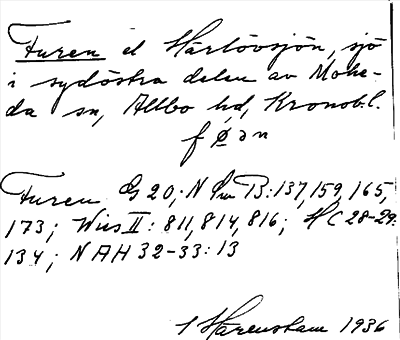 Furen el Härlövsjön, sjö
i sydöstra delen av Mohe-
da sn, Allbo hd, Kronob.l.
føən
Furen G 20; N Sm B: 137, 159, 165,
173; Wies II: 811, 814, 816; HC 28-29:
134; NAH 32-33: 13
1936